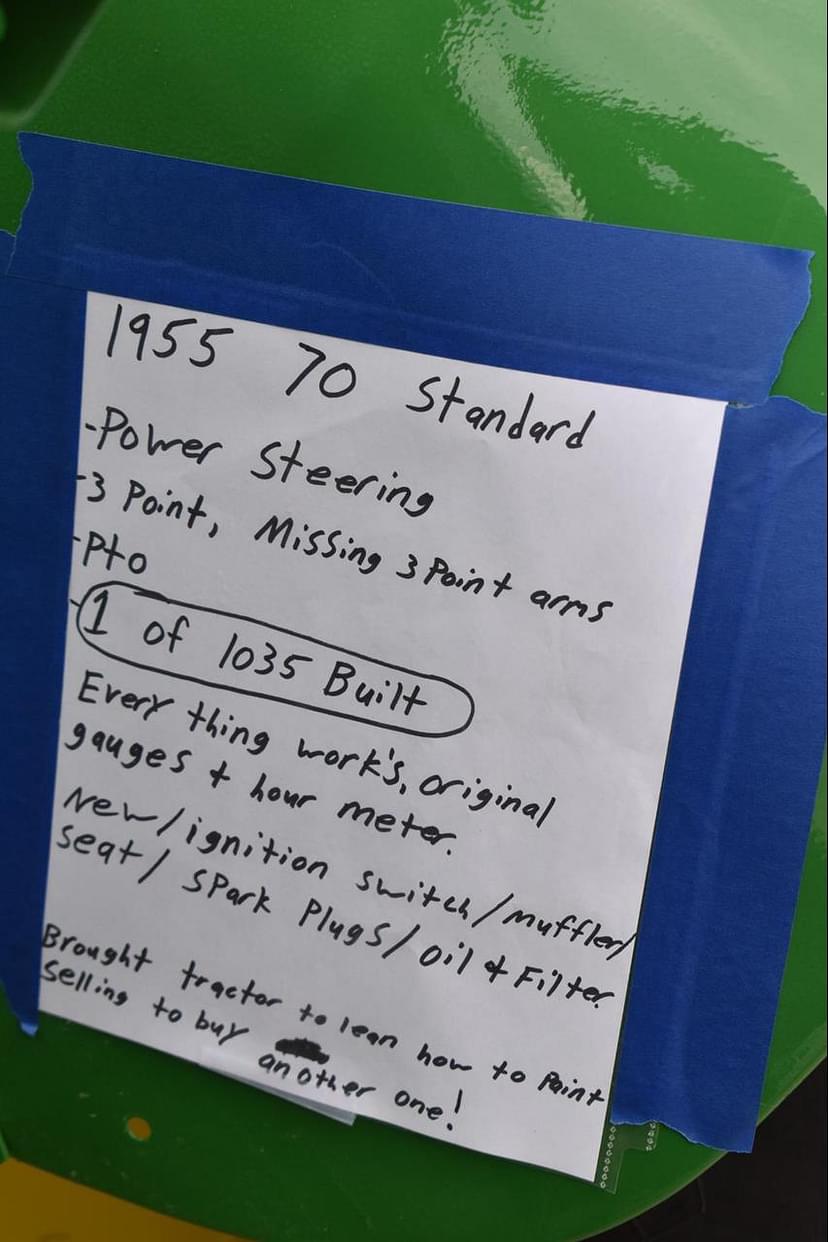 1955 70 Standard
-Power Steering
-3 Point, Missing 3 Point arms
-Pto
-1 of 1035 Built
Every thing work's, original
gauges + hour meter.
New/ignition switch/muffler/
seat/ Spark Plugs/ oil & Filter.
Brought tractor to lean how to Paint
selling to buy another one!